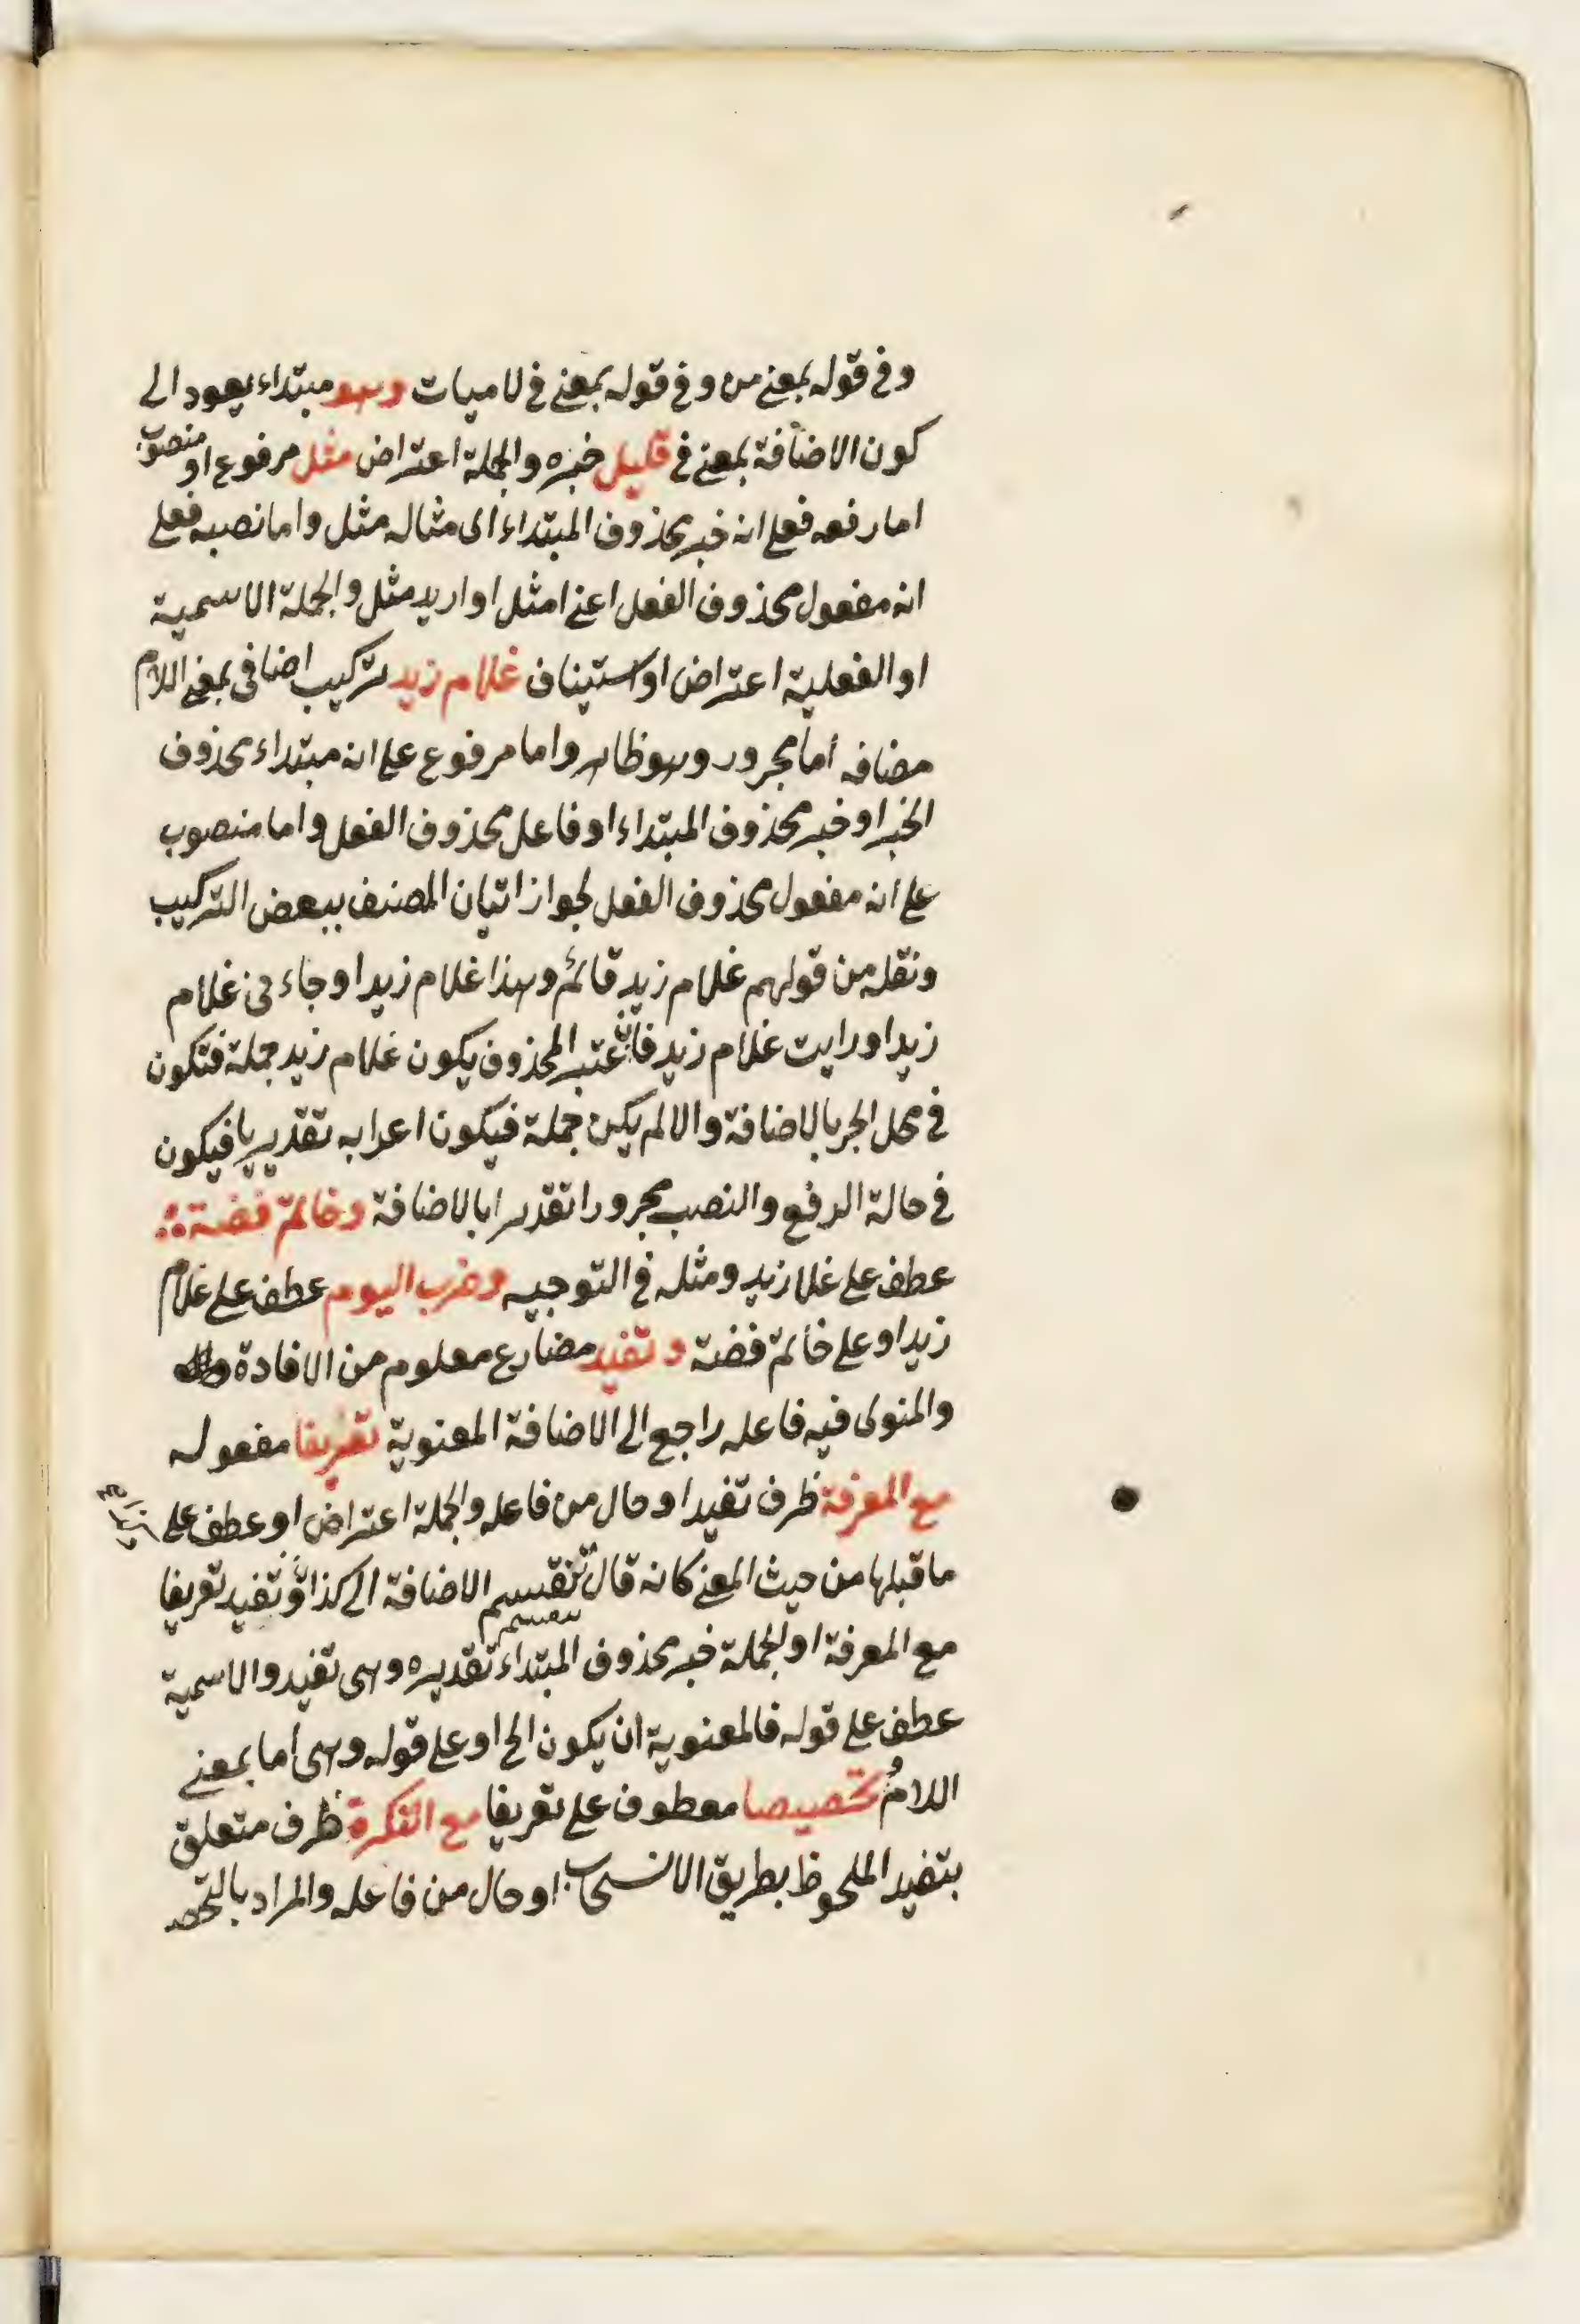 وفي قوله بمعنى من وفي قوله بمعنى في لاميات وهو مبتداء يعود الى
كون الاضافة بمعنى في قليل خبره والجملة اعتراض مثل مرفوع او منصوب
اما رفعه فعلى انه خبر محذوف المبتداء اى مثاله مثل واما نصبه فعلى
انه مفعول محذوف الفعل اعنى امثل او اريد مثل والجملة الاسمية
او الفعلية اعتراض او استيناف غلام زيد تركيب اضافى بمعنى اللام
مضافه اما مجرور وهو ظاهر واما مرفوع على انه مبتداء محذوف
الخبر او خبر محذوف المبتداء او فاعل محذوف الفعل واما منصوب
على انه مفعول محذوف الفعل لجواز اتيان المصنف ببعض التركيب
ونقله من قولهم غلام زيد قائم وهذا غلام زيد او جاءنى غلام
زيد او رايت غلام زيد فان اعتبر المحذوف يكون غلام زيد جملة فتكون
في محل الجر بالاضافة والا لم يكن جملة فيكون اعرابه تقديريا فيكون
في حالة الرفع والنصب مجرورا تقديرا بالاضافة وخاتم فضة
عطف على غلا زيد ومثله في التوجيه وضرب اليوم عطف على غلام
زيد او على خاتم فضة وتفيد مضارع معلوم من الافادة
والمنوى فيه فاعله راجع الى الاضافة المعنوية تعريفا مفعوله
مع المعرفة ظرف تفيد او حال من فاعله والجملة اعتراض او عطف على
ما قبلها من حيث المعنى كانه قال تنقسم الاضافة الى كذا وتفيد تعريفا
مع المعرفة او الجملة خبر محذوف المبتداء تقديره وهى تفيد والاسمية
عطف على قوله فالمعنوية ان يكون الخ او على قوله وهى اما بمعنى
اللام وتخصيصا معطوف على تعريفا مع النكرة ظرف متعلق
بتفيد الملحوظ بطريق الانسحاب او حال من فاعله والمراد بالتخصـ